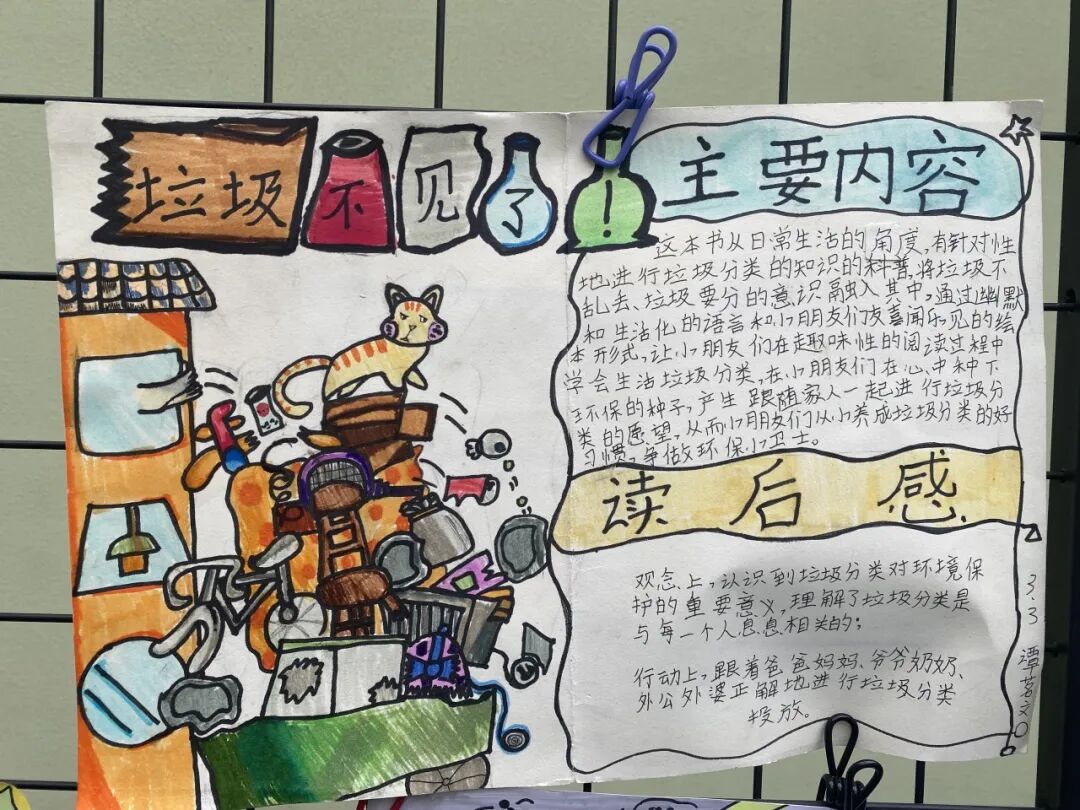 垃圾不见了!
主要内容
这本书从日常生活的角度,有针对性
地进行垃圾分类的知识的科普,将垃圾不
乱丢、垃圾要分的意识融入其中,通过幽默
和生活化的语言和小朋友们友喜闻乐见的绘
本形式,让小朋友们在趣味性的阅读过程中
学会生活垃圾分类,在小朋友们在心中种下
环保的种子,产生跟随家人一起进行垃圾分
类的愿望,从而小朋友们从小养成垃圾分类的好
习惯,争做环保小卫士。
读后感
观念上,认识到垃圾分类对环境保
护的重要意义,理解了垃圾分类是
与每一个人息息相关的;
行动上,跟着爸爸妈妈、爷爷奶奶、
外公外婆正解地进行垃圾分类
投放。
3.3 谭茗文